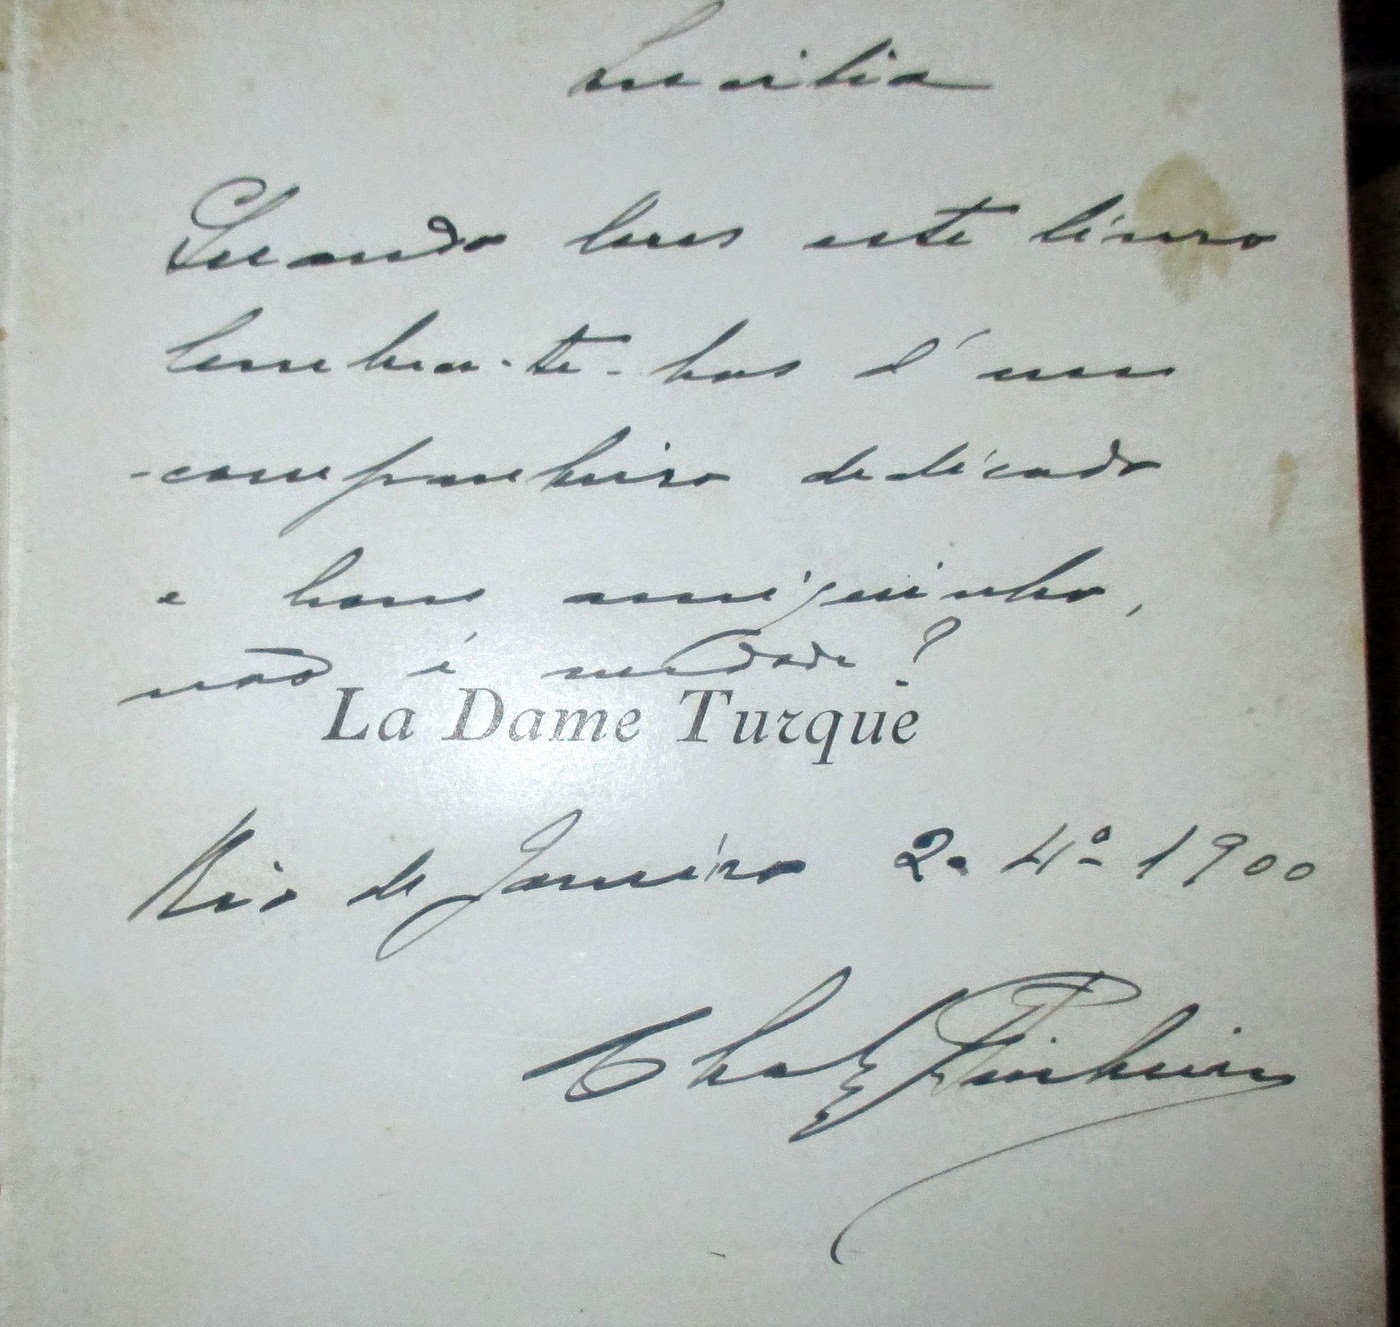 Lucilia
Quando leres este livro
lembra-te-has d'um
companheiro dedicado
e bom amiguinho,
não é verdade?
La Dame Turque
Rio de Janeiro 2. 4º 1900
Pinheiro